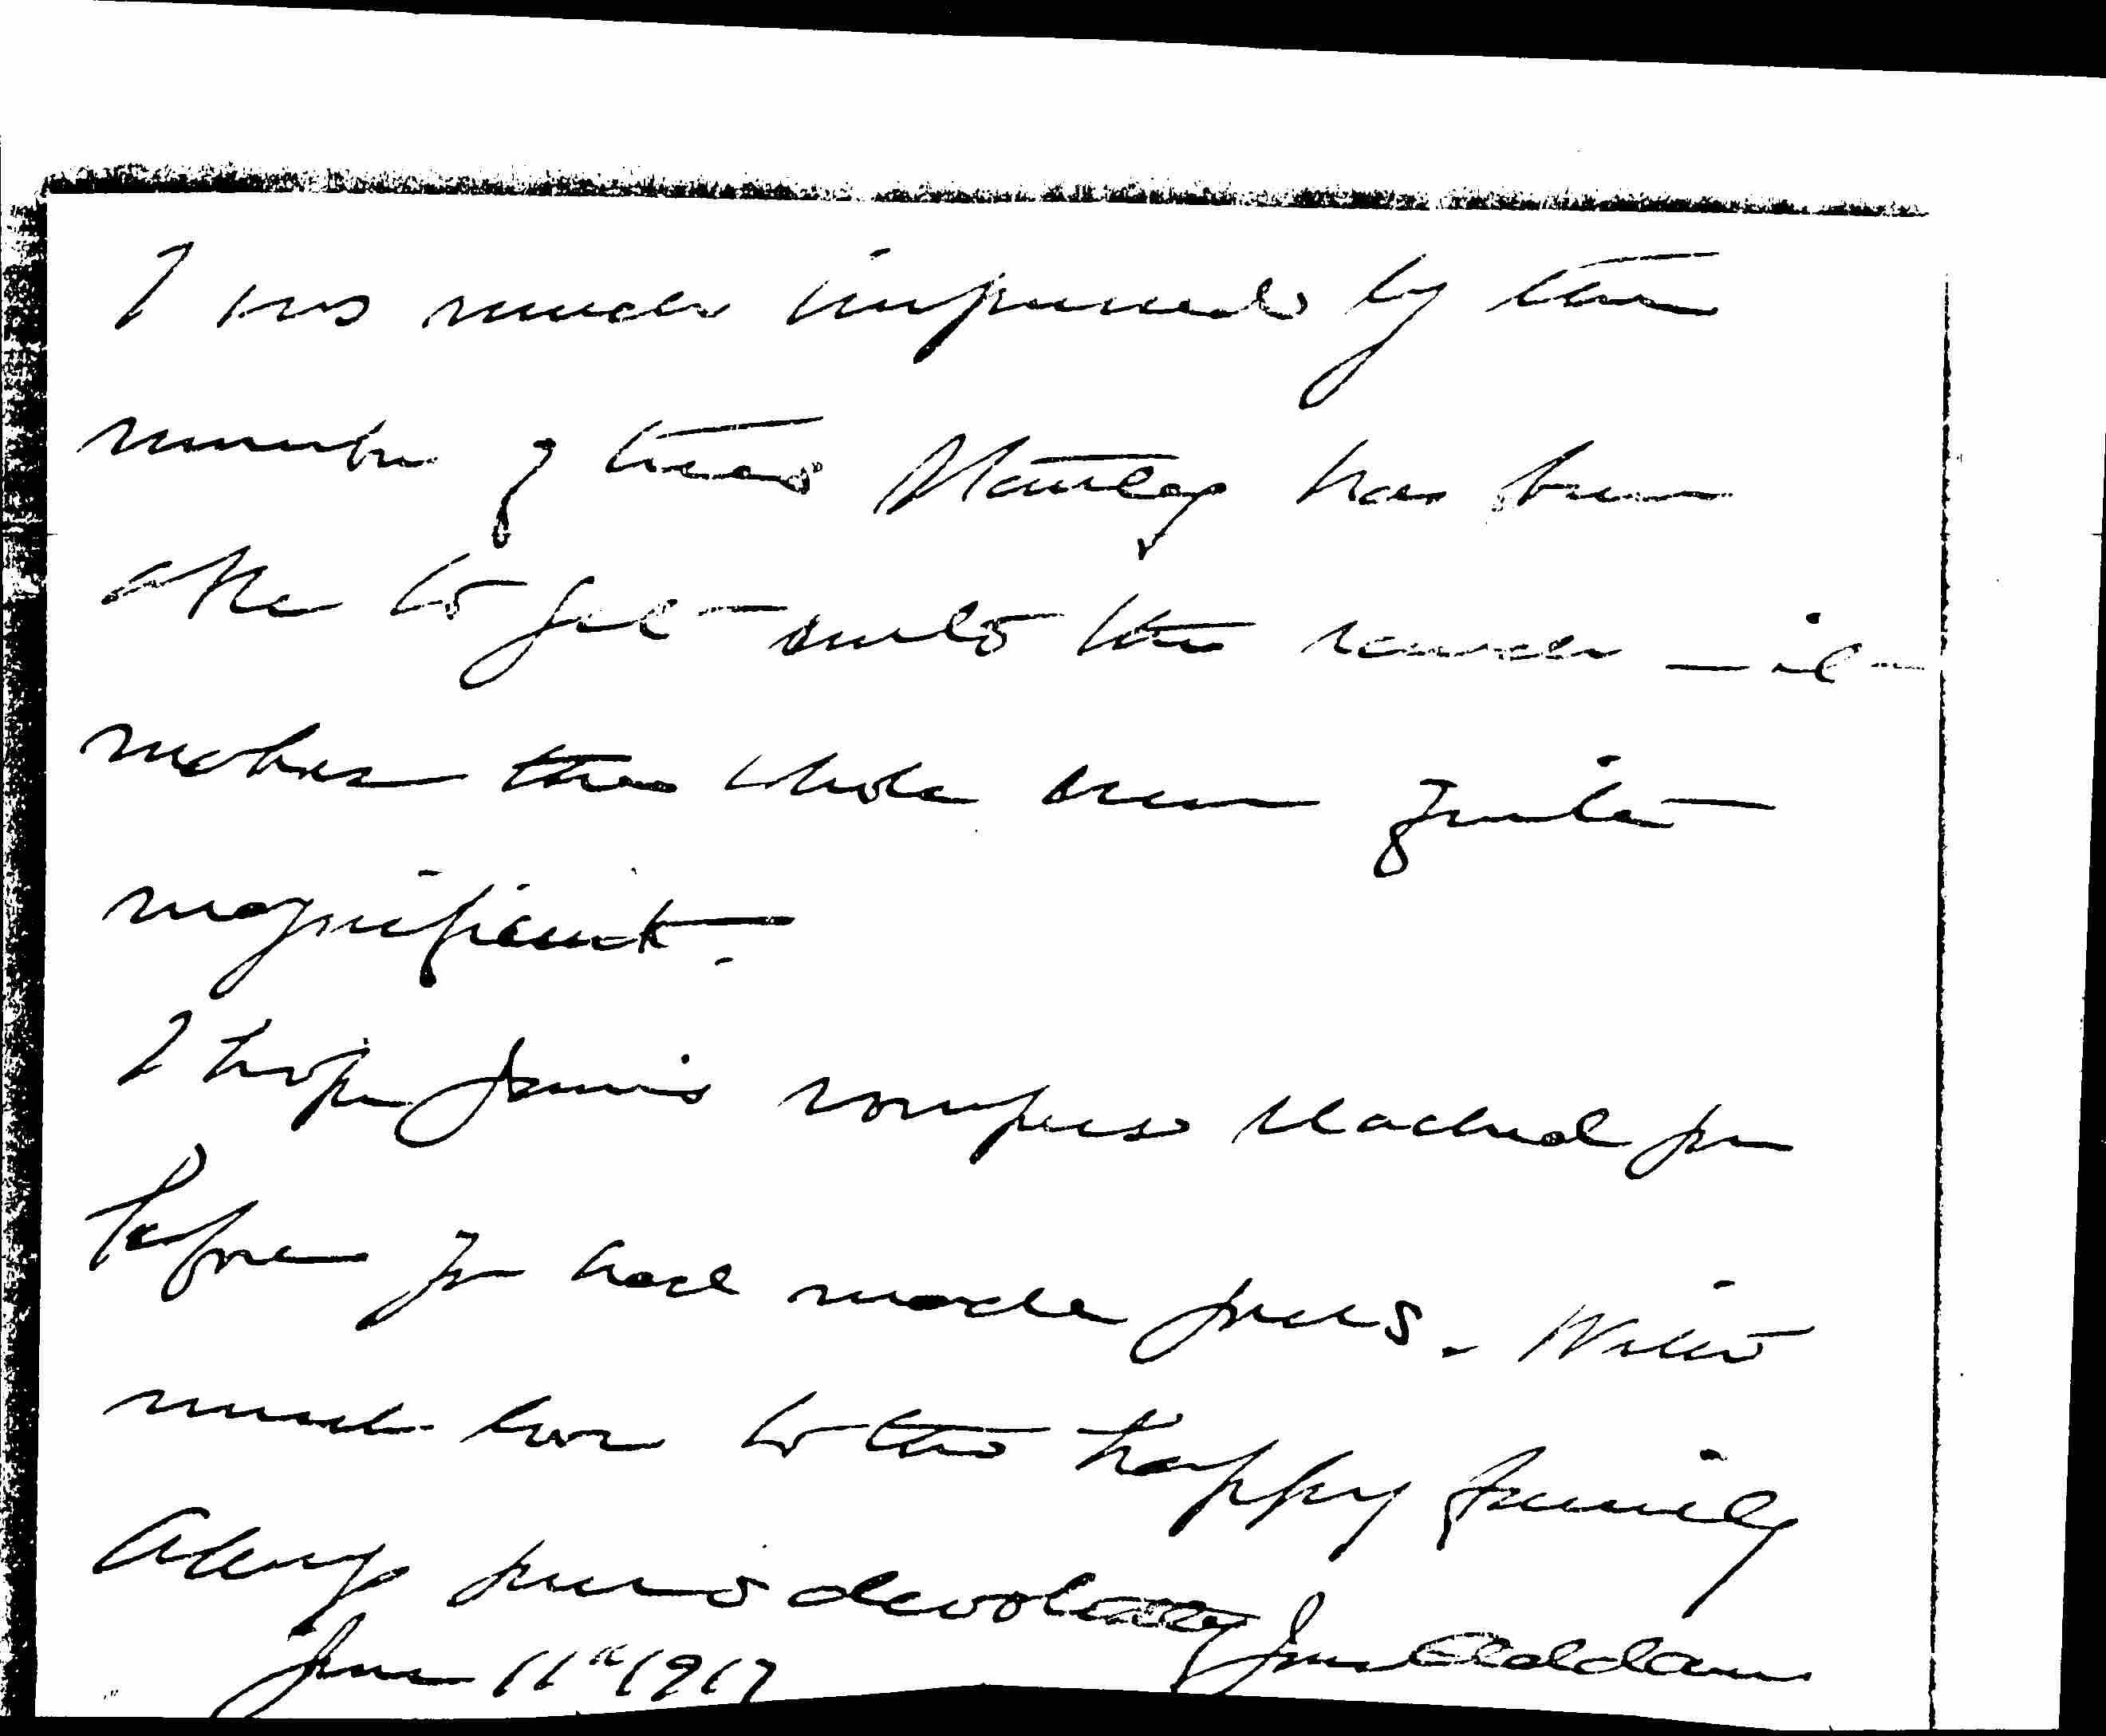 I was much impressed by the
number of trees Stanley has been
able to get onto the ranch — it
makes the whole area quite
magnificent.
I hope Jane's rompers reached you
before you had made yours. With
much love to the happy family
Always yours devotedly Jane Addams
June 11" 1917